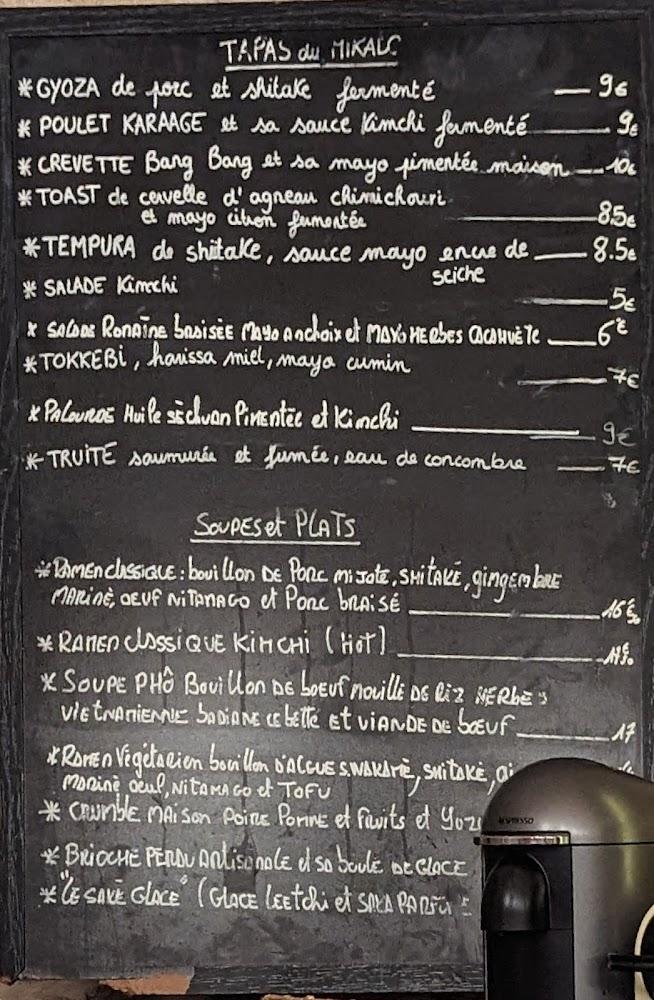 TAPAS du MIKADO
*GYOZA de porc et shitake fermenté — 9€
* POULET KARAAGE et sa sauce Kimchi fermenté — 9€
* CREVETTE Bang Bang et sa mayo pimentée maison — 10€
* TOAST de cervelle d'agneau chimichouri
et mayo citron fermentée — 8.5€
* TEMPURA de shiitake, sauce mayo encre de — 8.5€
seiche
* SALADE Kimchi
— 5€
* SALADE ROMAÏNE braisée Mayo anchoix et MAYO HERBES CACAHUÈTE — 6€
* TOKKEBI, harissa miel, mayo cumin
— 7€
* PALOURDE Huile sèchuan Pimentée et Kimchi
— 9€
* TRUITE saumurée et fumée, eau de concombre — 7€
SOUPES et PLATS
* RAMEN CLASSIQUE : bouillon DE PORC MIJOTÉ, SHITAKÉ, gingembre
MARINÈ, OEUF NITAMAGO et PORC BRAISÉ — 16€50
* RAMEN CLASSIQUE KIMCHI (HOT)
* SOUPE PHÔ Bouillon DE boeuf nouille DE RIZ HERBES
VIETNAMIENNE BADIANE CEBETTE ET VIANDE DE bœuf — 17
* RAMEN Végétarien bouillon D'ALGUES, WAKAMÉ, SHITAKÉ,
MARINÈ, oeuf, NITAMAGO et TOFU
* CRUMBLE MAISON POIRE POMME et fruits et
* BRIOCHE PERDU ARTISANALE et sa boule DE GLACE
* "LE SAKÉ GLACE" (GLACE LEETCHI et
NESPRESSO